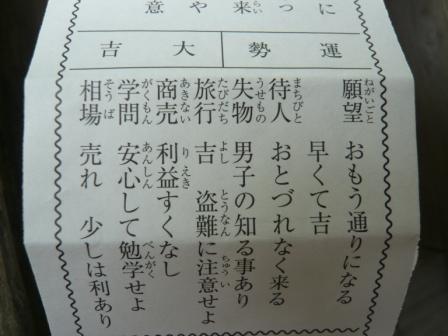 に
つ
来
や
意
運勢
大吉
願望 おもう通りになる
早くて吉
待人 おとづれなく来る
失物 男子の知る事あり
旅行 吉 盗難に注意せよ
商売 利益すくなし
学問 安心して勉学せよ
相場 売れ 少しは利あり